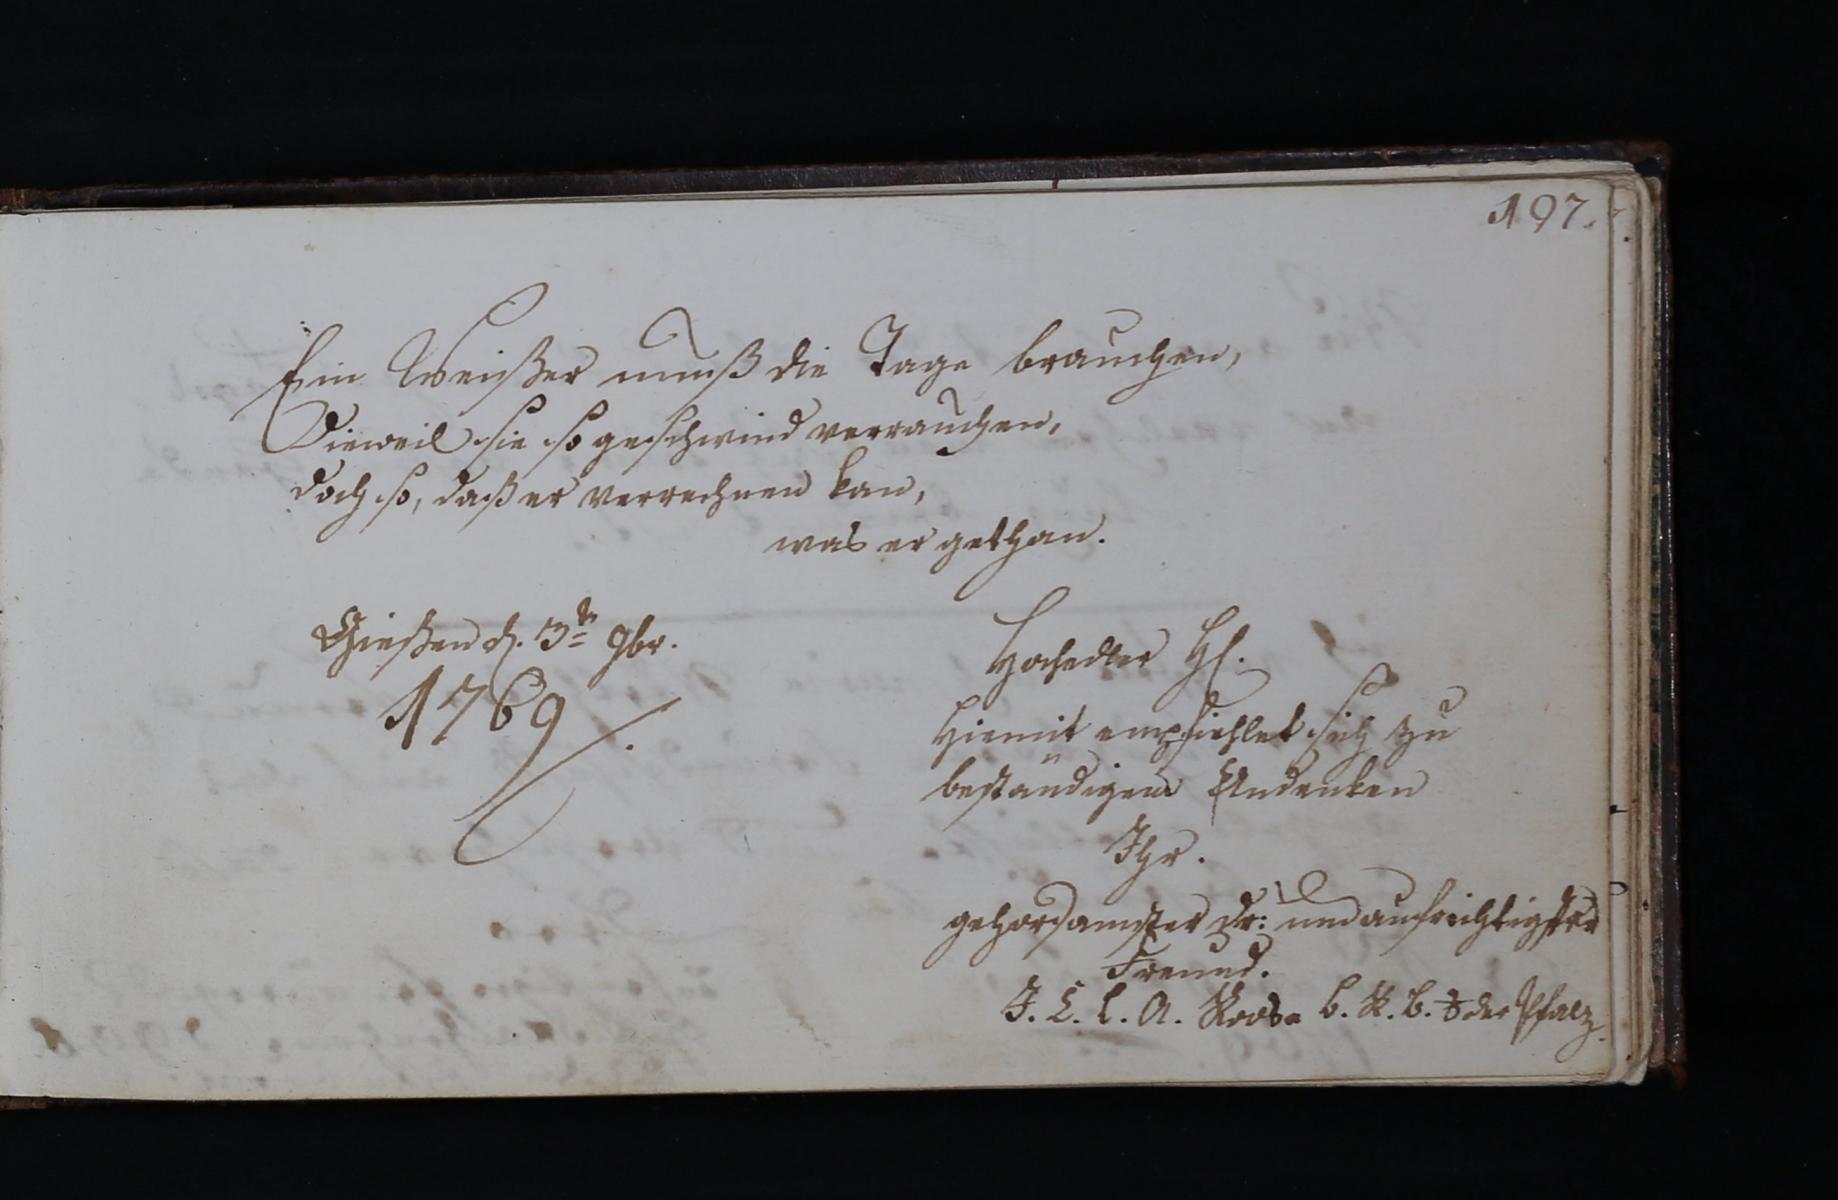 197.
Ein Weißer muß die Tage brauchen,
Dieweil sie so geschwind verrauchen,
doch so, daß er verrechnen kan,
was er gethan.
Gießen d. 3te 9br.
1769
Hochedler H.
Hiemit empfiehlet sich zu
beständigem Andenken
Ihr.
gehorsamster Dr: und aufrichtigster
Freund.
J. L. C. A. Roos. der Pfalz.